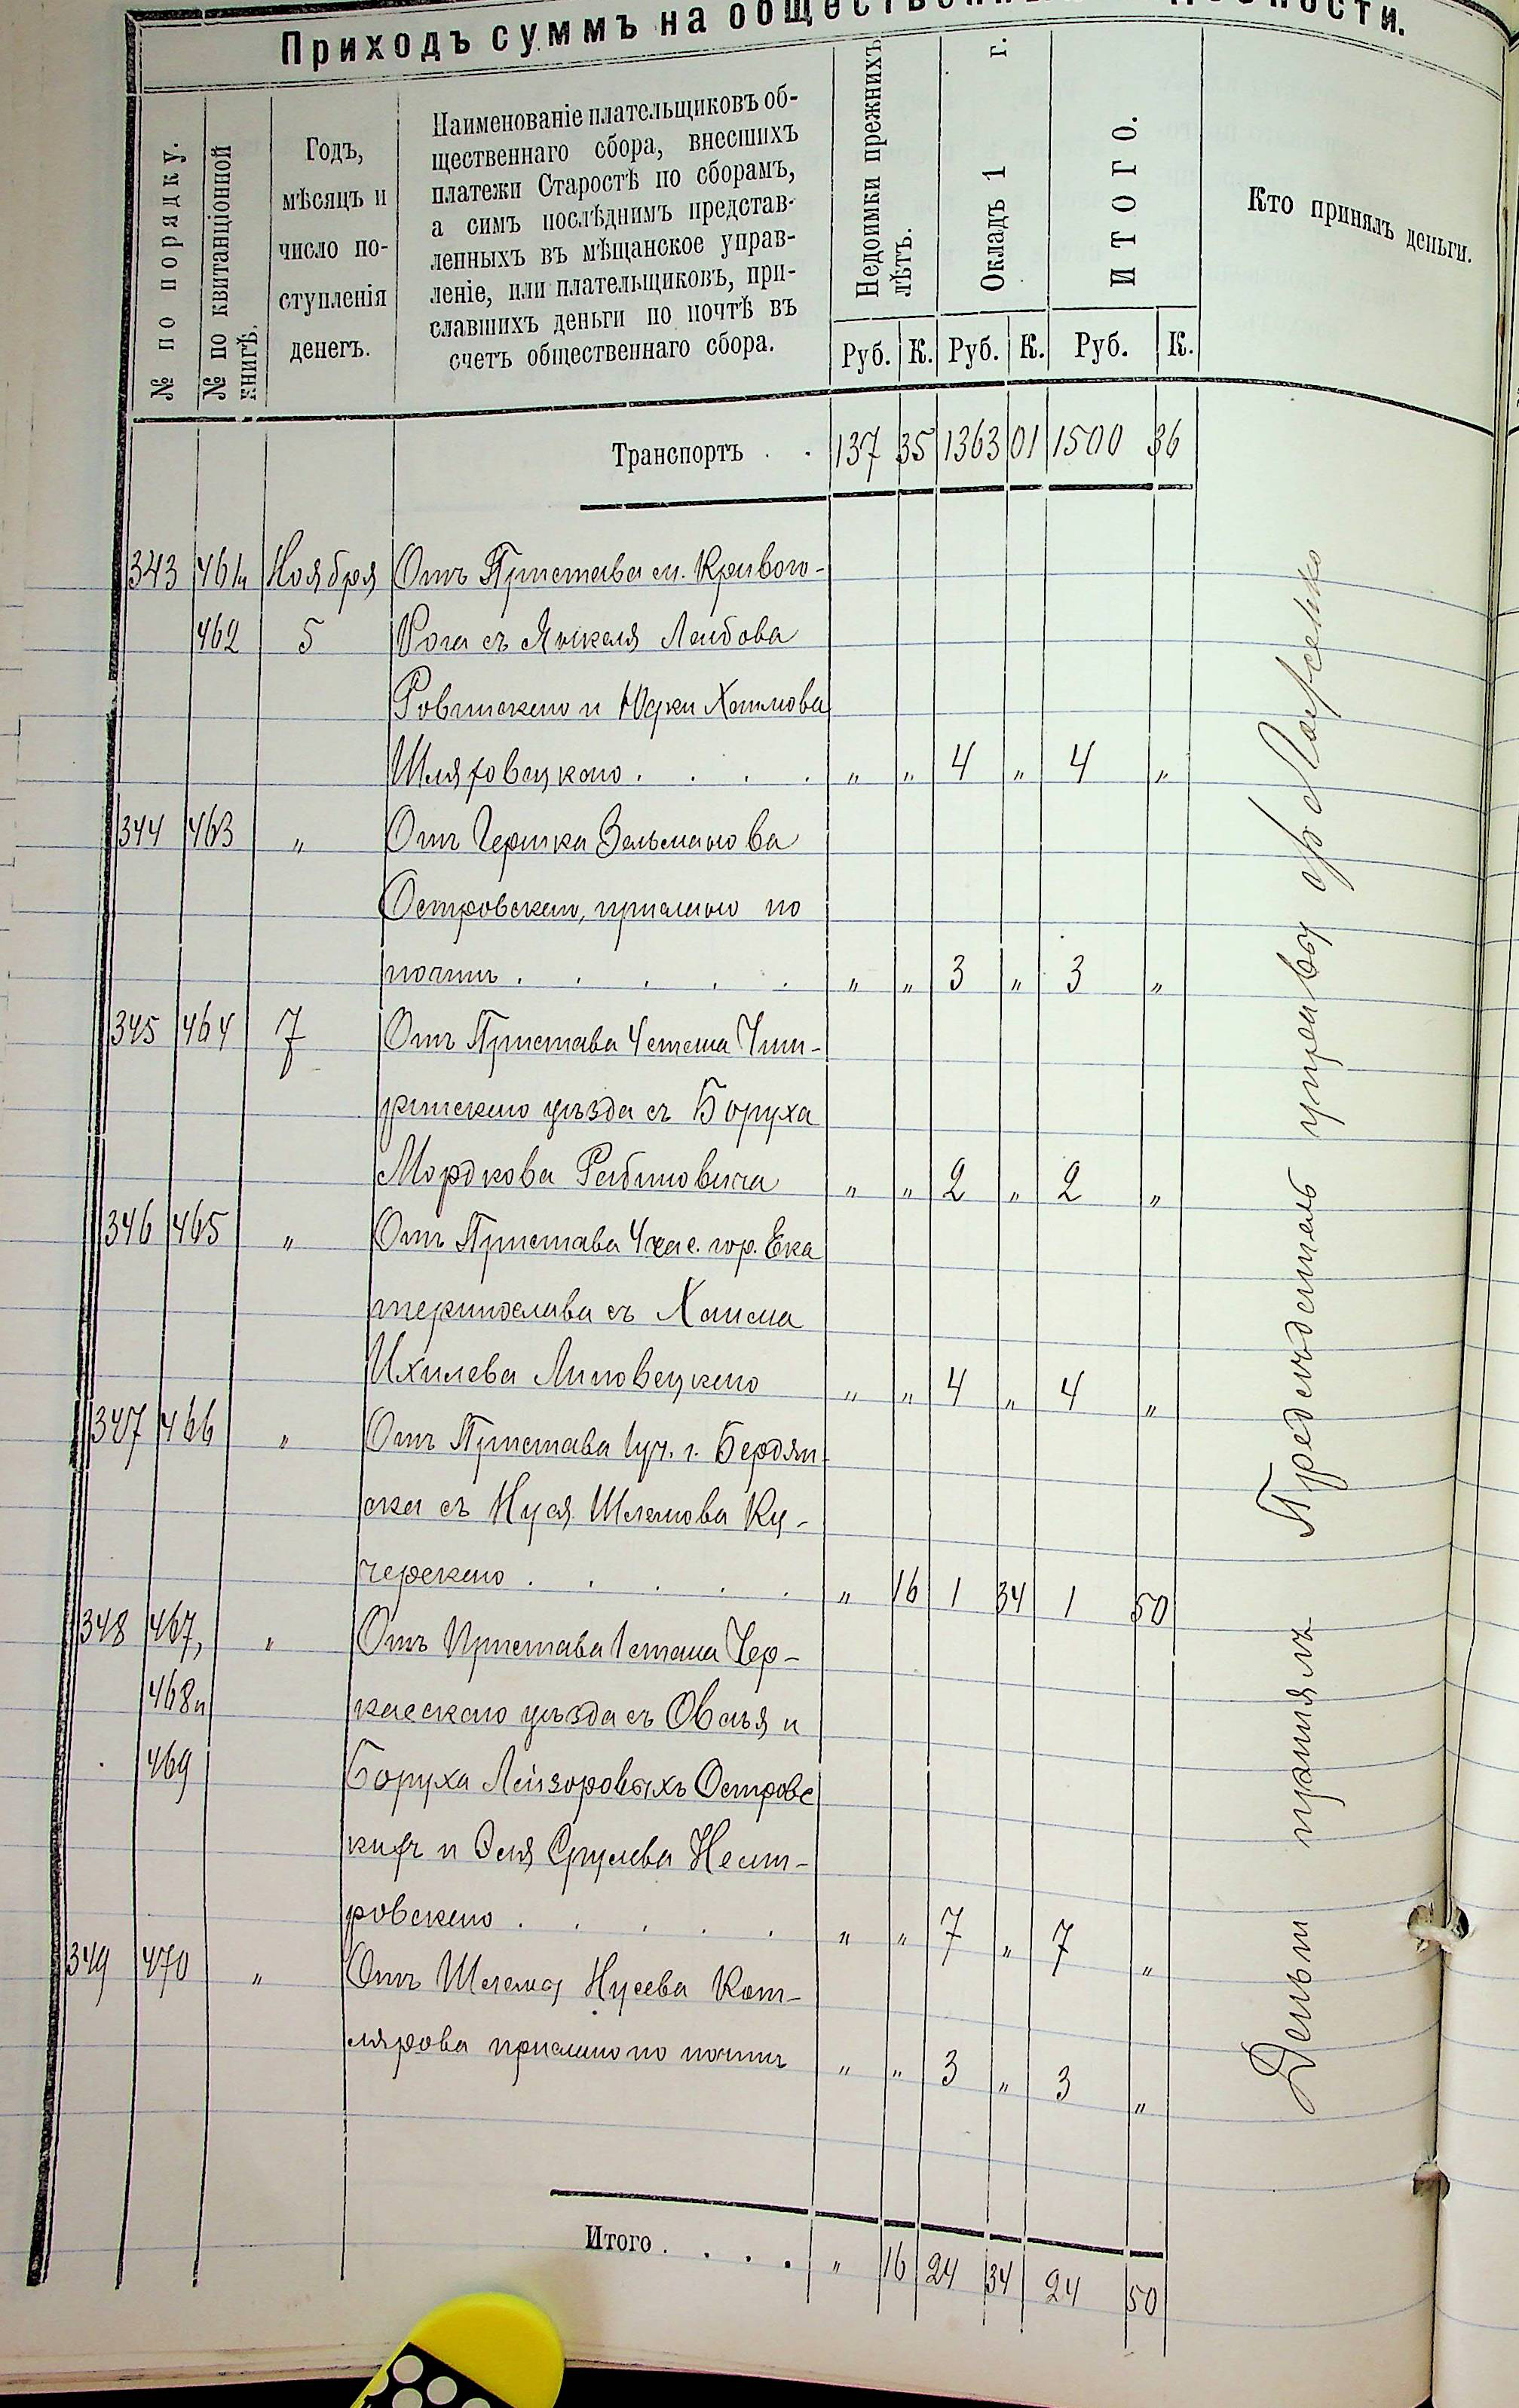 Приходъ суммъ на общественныя
№ по порядку.
№ по квитанціонной
книгѣ.
Годъ,
мѣсяцъ и
число по-
ступленія
денегъ.
Наименованіе плательщиковъ об-
щественнаго сбора, внесшихъ
платежи Старостѣ по сборамъ,
а симъ послѣднимъ представ-
ленныхъ въ мѣщанское управ-
леніе, или плательщиковъ, при-
славшихъ деньги по почтѣ въ
счетъ общественнаго сбора.
Недоимки прежнихъ
лѣтъ.
Окладъ 1 г.
ИТОГО.
Кто принялъ деньги.
Руб. К. Руб. К. Руб. К.
Транспортъ . . 137 35 1363 01 1500 36
343 461 и Ноября Отъ Пристава м. Кривого-
462 5 Рога съ Янкеля Лейбова
Ровинскаго и Юдки Хаимова
Шляховецкого . . . . „ „ 4 „ 4 „
344 463 „ Отъ Гершка Зельманова
Островскаго, прислано по
почтѣ . . . . . „ „ 3 „ 3 „
345 464 7 Отъ Пристава 4 стана Чиги-
ринскаго уѣзда съ Боруха
Мордкова Рабиновича „ „ 2 „ 2 „
346 465 „ Отъ Пристава 4 час. гор. Ека
теринослава съ Хаима
Ихилева Липовецкаго „ „ 4 „ 4 „
347 466 „ Отъ Пристава 1 уч. г. Бердян-
ска съ Нуся Шлемова Ку-
черскаго . . . . . „ 16 1 34 1 50
348 467, „ Отъ Пристава 1 стана Чер-
468 и касскаго уѣзда съ Овсѣя и
469 Боруха Лейзоровыхъ Островс
кихъ и Эля Срулева Нест-
ровскаго . . . . . „ „ 7 „ 7 „
349 470 „ Отъ Шлемы Нусева Кот-
лярова прислано по почтѣ „ „ 3 „ 3 „
Итого . . . . „ 16 24 34 24 50
Деньги принялъ Предсѣдатель управы